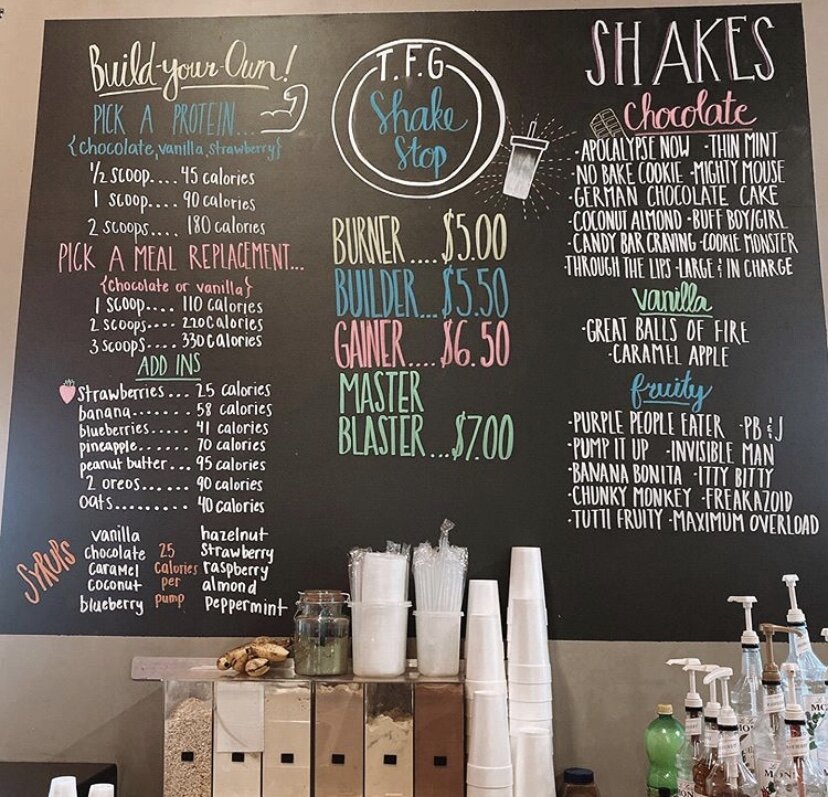 Build-your-Own!
PICK A PROTEIN...
{chocolate, vanilla, strawberry}
1/2 scoop.... 45 calories
1 scoop.... 90 calories
2 scoops.... 180 calories
PICK A MEAL REPLACEMENT...
{chocolate or vanilla}
1 scoop.... 110 calories
2 scoops.... 220 calories
3 scoops.... 330 calories
ADD INS
strawberries... 25 calories
banana....... 58 calories
blueberries..... 41 calories
pineapple..... 70 calories
peanut butter... 95 calories
2 oreos...... 90 calories
oats......... 40 calories
SYRUPS
vanilla
chocolate
caramel
coconut
blueberry
25
calories
per
pump
hazelnut
strawberry
raspberry
almond
peppermint
T.F.G
Shake
Stop
BURNER....$5.00
BUILDER...$5.50
GAINER....$6.50
MASTER
BLASTER...$7.00
SHAKES
chocolate
·APOCALYPSE NOW ·THIN MINT
NO BAKE COOKIE ·MIGHTY MOUSE
·GERMAN CHOCOLATE CAKE
COCONUT ALMOND ·BUFF BOY/GIRL
·CANDY BAR CRAVING ·COOKIE MONSTER
THROUGH THE LIPS ·LARGE & IN CHARGE
vanilla
·GREAT BALLS OF FIRE
·CARAMEL APPLE
fruity
·PURPLE PEOPLE EATER ·PB & J
·PUMP IT UP ·INVISIBLE MAN
·BANANA BONITA ·ITTY BITTY
·CHUNKY MONKEY ·FREAKAZOID
·TUTTI FRUITY ·MAXIMUM OVERLOAD